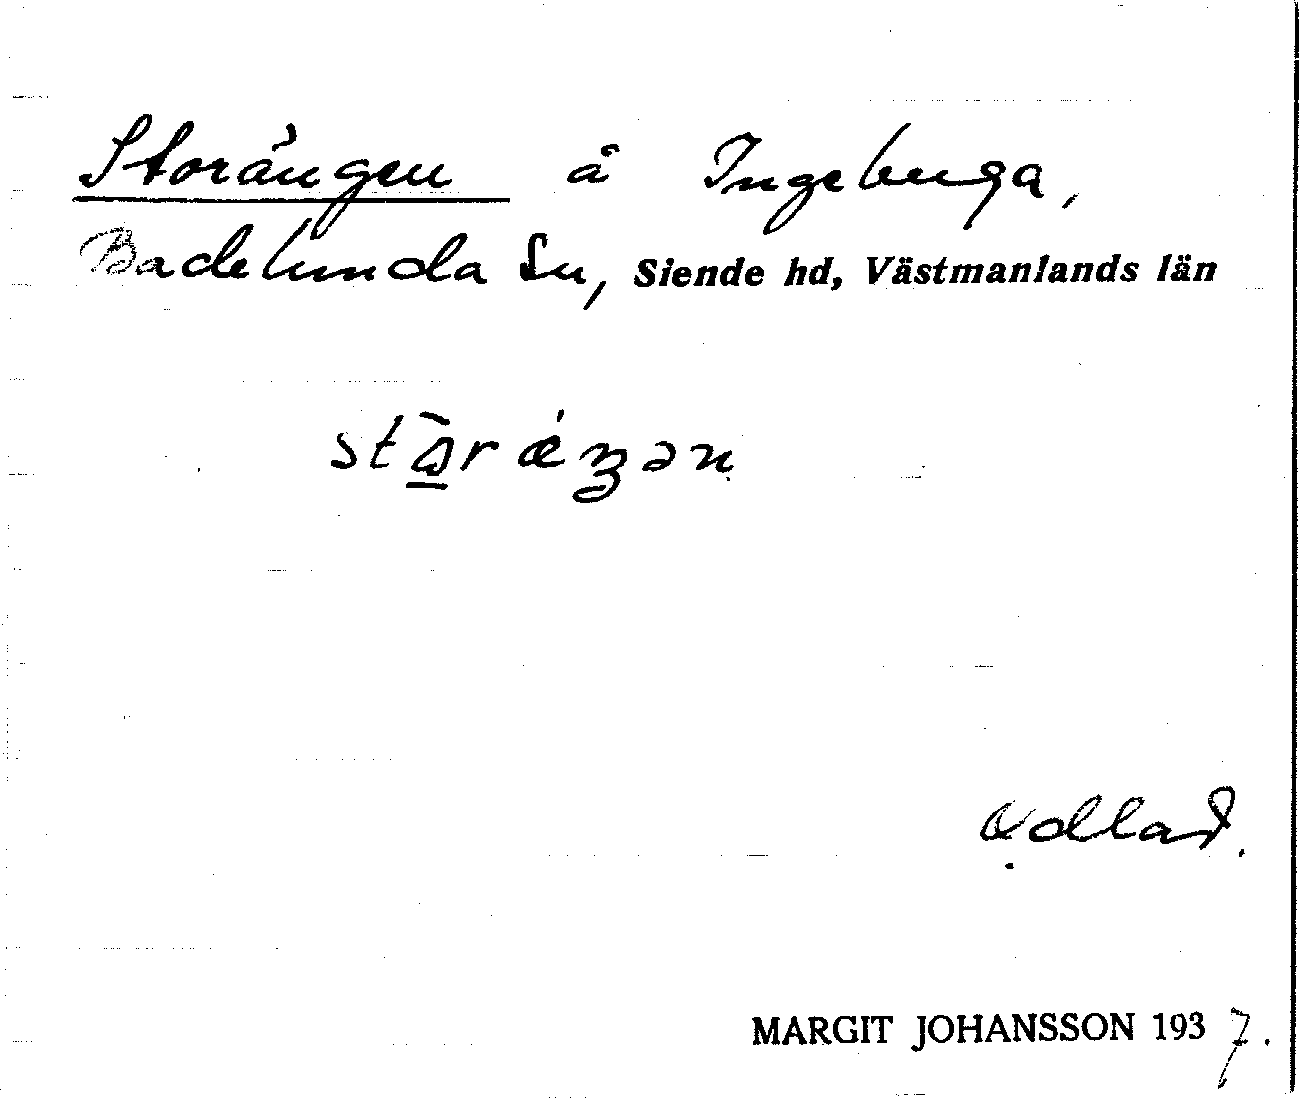 Storängen å Ingeberga,
Badelunda sn, Siende hd, Västmanlands län
odlad.
MARGIT JOHANSSON 1937.